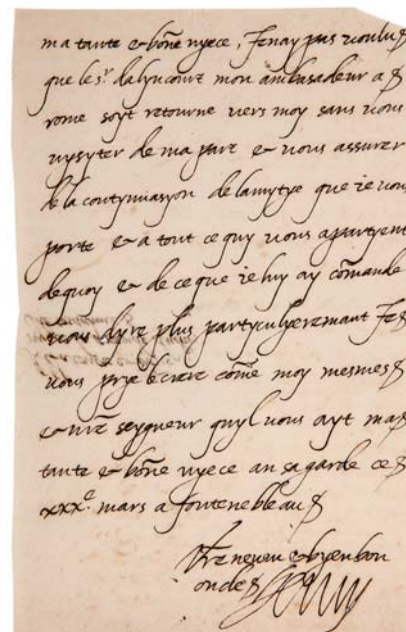 ma tante & bōne nyece, Je nay pas voulu
que le sr. dalyncourt mon ambasadeur a
rome soyt retourne vers moy sans vous
vysyter de ma part & vous assurer
de la contynuasyon de lamytye que je vous
porte & a tout ce quy vous apartyent
de quoy & de ce que je luy ay cōmande
vous dyre plus partyculyeremant Je
vous prye le crere cōme moy mesmes
& nr̄e seygneur quyl vous ayt ma
tante & bōne nyece an sa garde ce
xxxe. mars a fontenebleau
Vr̄e neveu & byen bon
oncle Henry